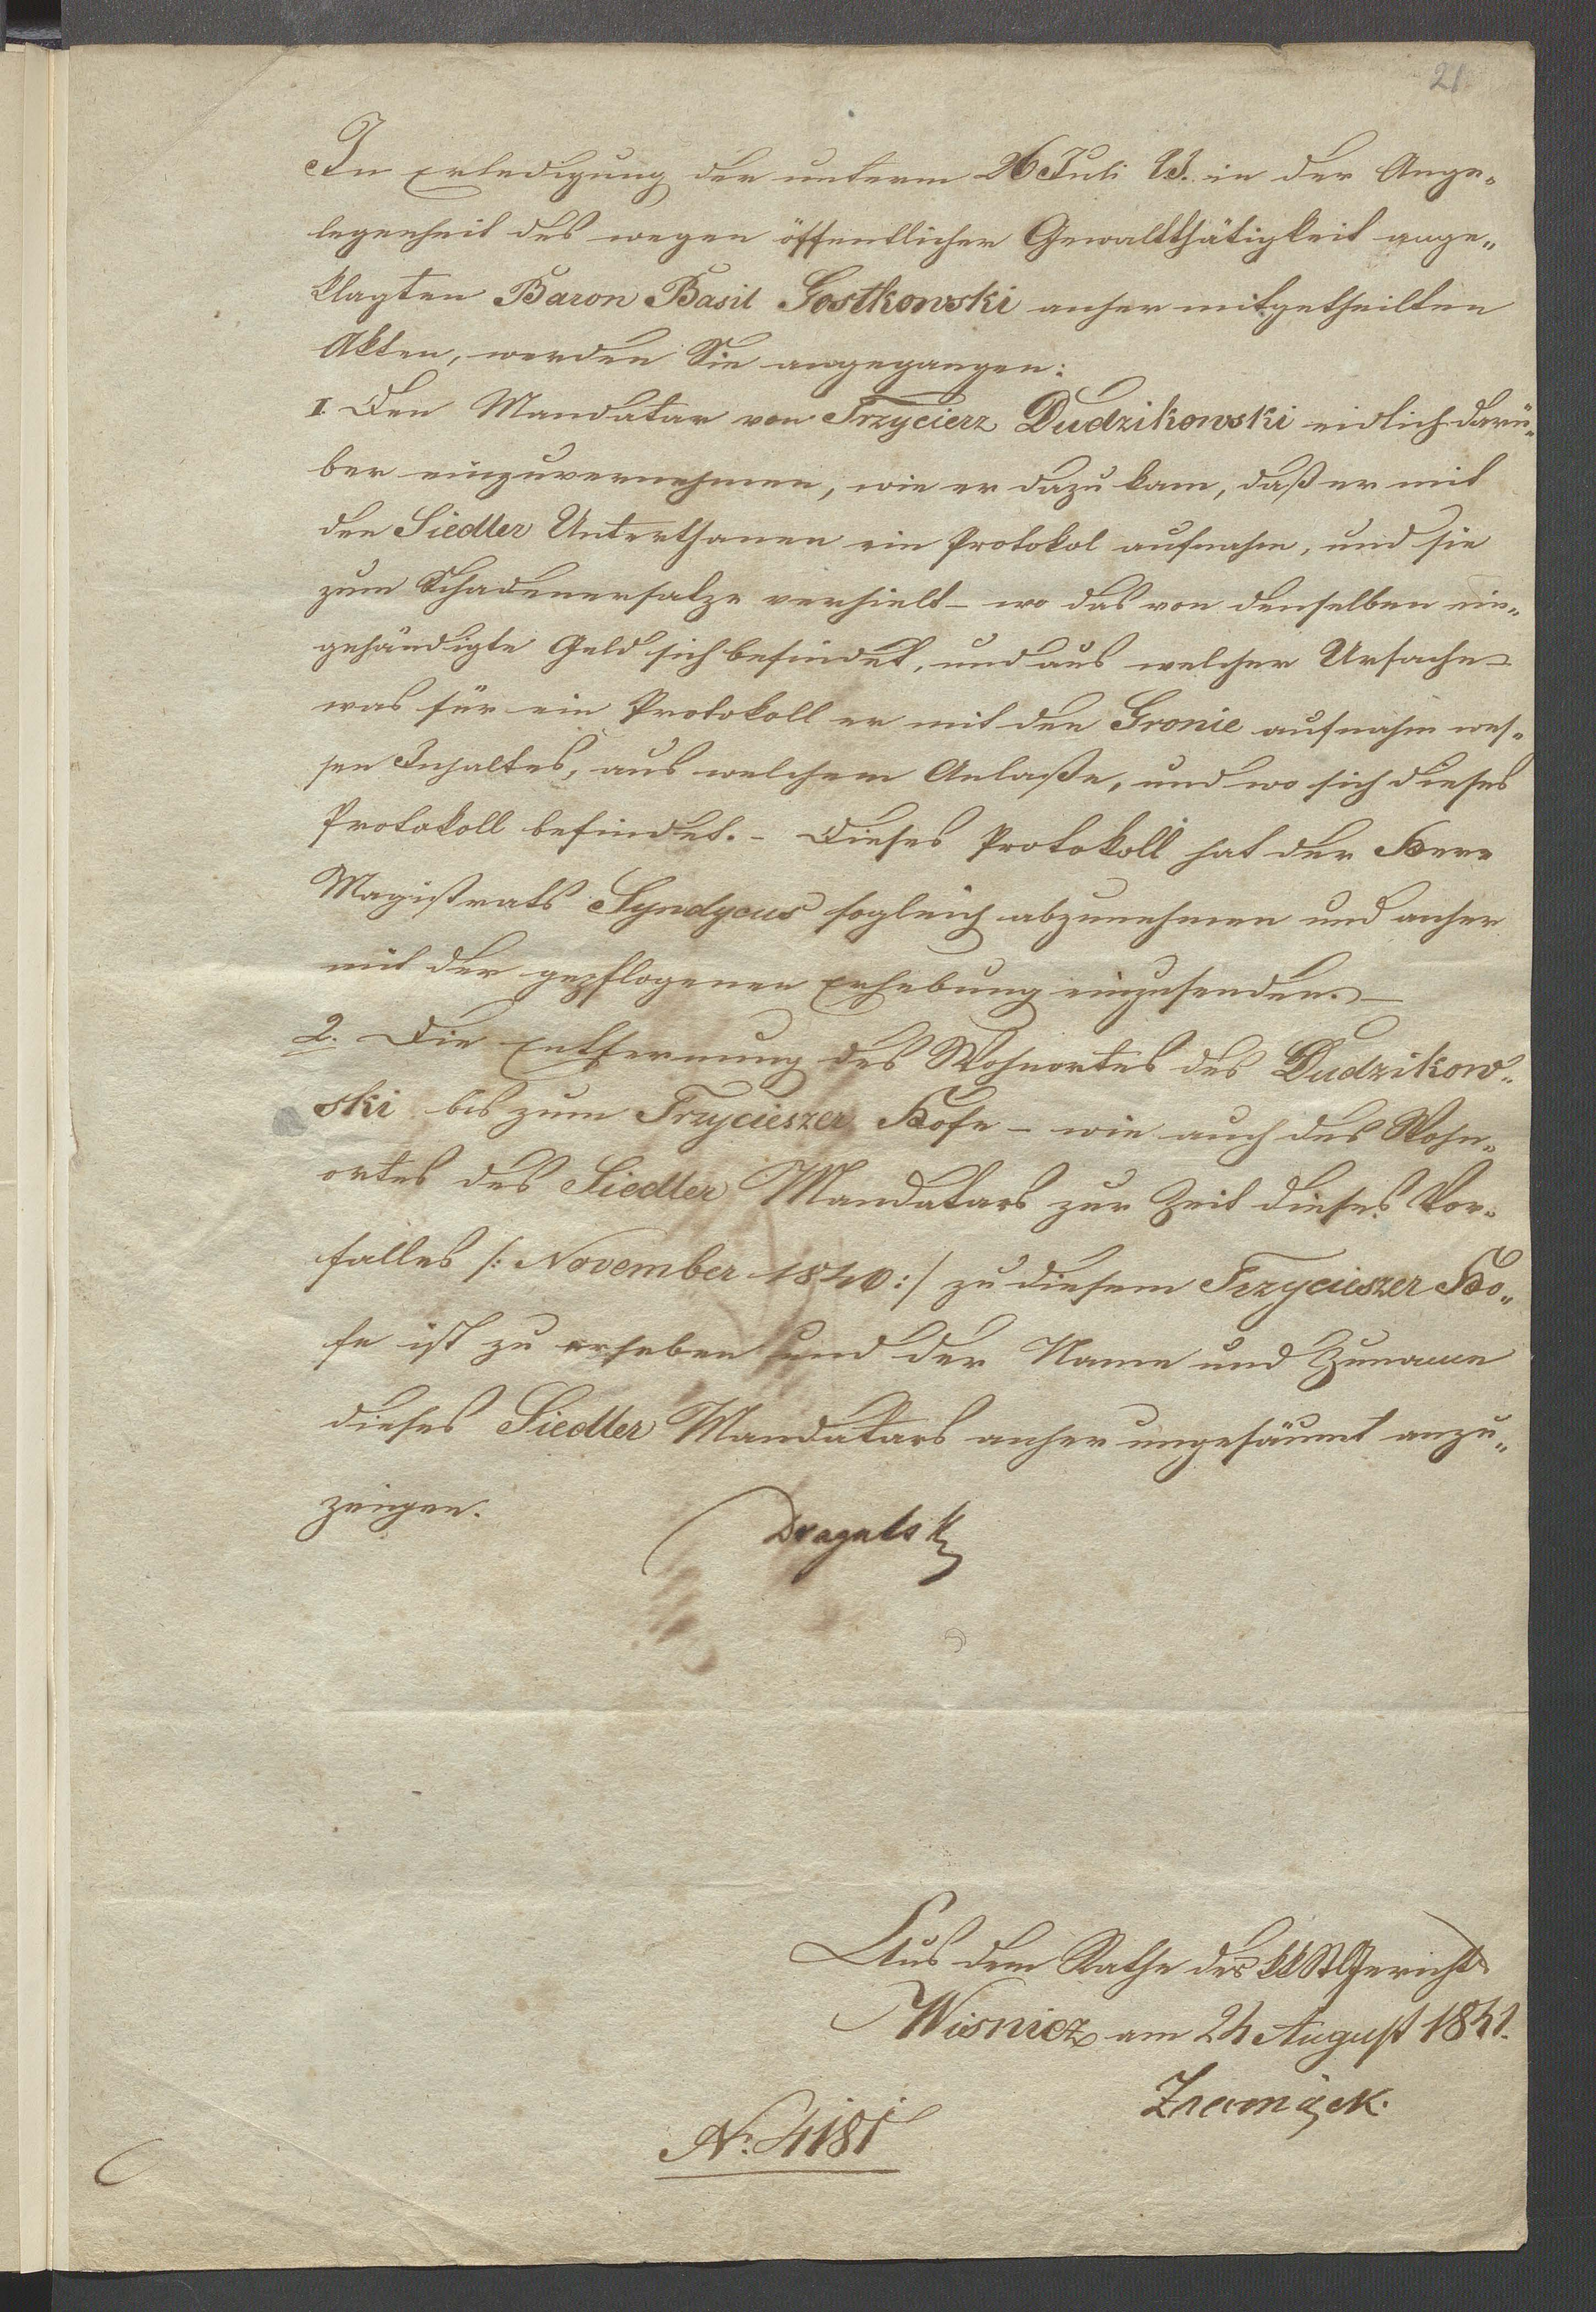 21
In Erledigung der unterm 26 Juli l.J. in der Ange„
legenheit des wegen öffentlicher Gewaltthätigkeit ange„
klagten Baron Basil Gostkowski anher mitgetheilten
Akten, werden Sie angegangen:
1 Den Mandatar von Trzycierz Dudzikowski eidlich darü„
ber einzuvernehmen, wie er dazu kam, daß er mit
den Siedler Unterthanen ein Protokol aufnahm, und sie
zum Schadenersatze verhielt – wo das von denselben ein„
gehändigte Geld sich befindet, und aus welcher Ursache –
was für ein Protokoll er mit den Gronie aufnahm wes„
sen Inhaltes, aus welchem Anlaße, und wo sich dieses
Protokoll befindet. – Dieses Protokoll hat der Herr
Magistrats Syndycus sogleich abzunehmen und anher
mit der gepflogenen Erhebung einzusenden. –
2. Die Entfernung des Wohnortes des Dudzikow„
ski bis zum Trzycieszer Hofe – wie auch des Wohn„
ortes des Siedler Mandatars zur Zeit dieses Vor„
falles /: November 1840 :/ zu diesem Trzycieszer Ho„
fe ist zu erheben und der Name und Zuname
dieses Siedler Mandatars anher ungesäumt anzu„
zeigen.
Aus dem Rathe des kk Gerichts
Wisnicz am 24 August 1841.
Nr. 4181